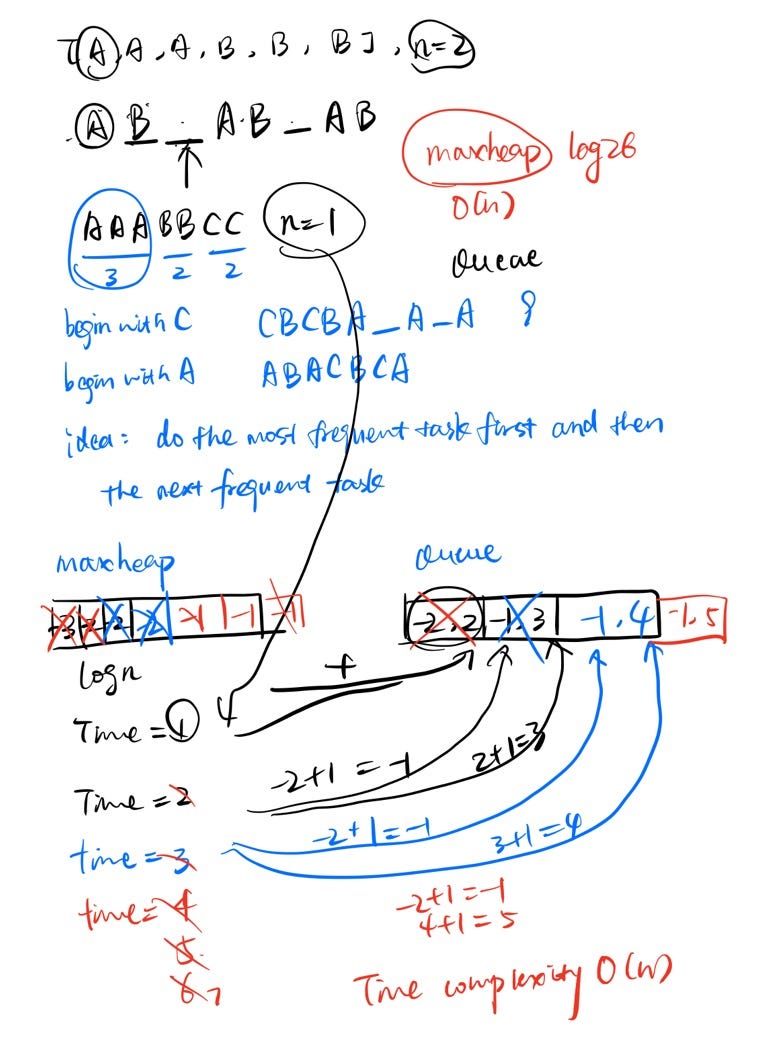 [A, A, A, B, B, B], n=2
A B _ A B _ A B
maxheap log26
O(n)
AAA BB CC n=1
3 2 2
Queue
begin with C CBCBA_A_A
begin with A ABACBCA
idea: do the most frequent task first and then
the next frequent task
maxheap Queue
-3 -2 -2 -2 -1 -1 -1
-2,2 -1,3 -1,4 -1,5
logn
+
Time = 1
Time = 2 -2+1 = -1 2+1=3
time = 3 -2+1=-1 3+1=4
time = 4 -2+1=-1
4+1=5
5
6 7
Time complexity O(n)